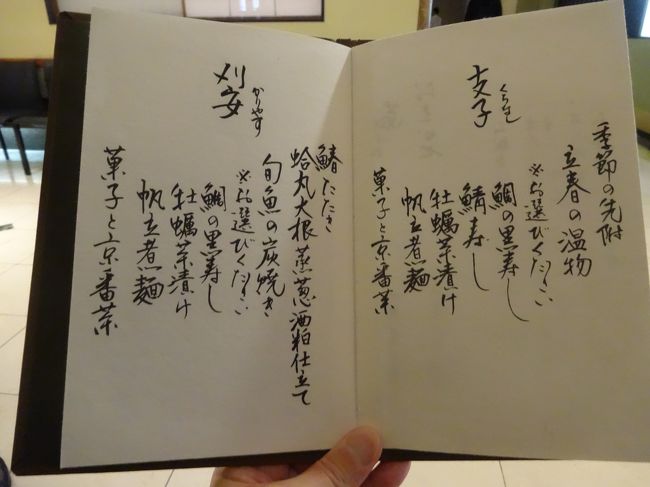 支子
くちなし
季節の先附
立春の温物
※お選びください
鯛の黒寿し
鯖寿し
牡蠣茶漬け
帆立煮麺
菓子と京番茶
刈安
かりやす
鰆たたき
蛤丸大根蒸葱酒粕仕立て
旬魚の炭焼き
※お選びください
鯛の黒寿し
牡蠣茶漬け
帆立煮麺
菓子と京番茶